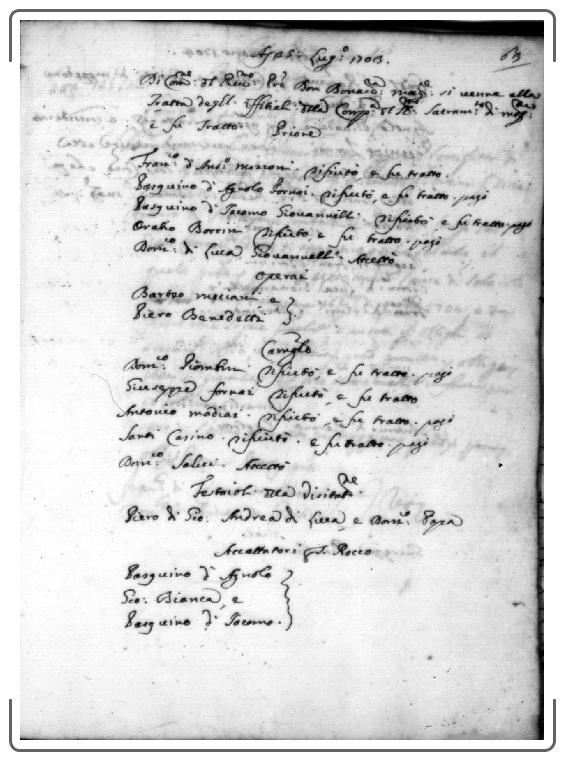 A dì 5. Lug.º 1703. 63
Di Com.ne del Rev.do Pre Don Bonav.ra si venne alla
Tratta degl. Offitial. della Comp.a del SS. Sacram.to di
e fu Tratto Priore
Fran.co d'Ant.o Marconi. rifiutò, e fu tratto.
Pasquino d'Agnolo Fornai. rifiutò, e fu tratto. pagò
Pasquino d'Jacomo Giovannell. rifiutò e fu tratto. pagò
Oratio Borrini rifiutò, e fu tratto. pagò
Dom.co di Luca Giovannell. Accettò
Operai
Barteo e
Piero Benedetti
Camglo
Dom.co Piombin. rifiutò, e fu tratto. pagò
Giuseppe fornai rifiutò, e fu tratto
Antonio madiai. rifiutò e fu tratto. pagò
Santi Casino. rifiutò. e fu tratto. pagò
Dom.co Salvi. Accettò
Festaioli della Visitat.ne
Piero di Gio. Andrea di Luca, e Dom.co Papa
Accattatori p S. Rocco
Pasquino d'Agnolo
Gio. Bianca, e
Pasquino d'Jacomo.